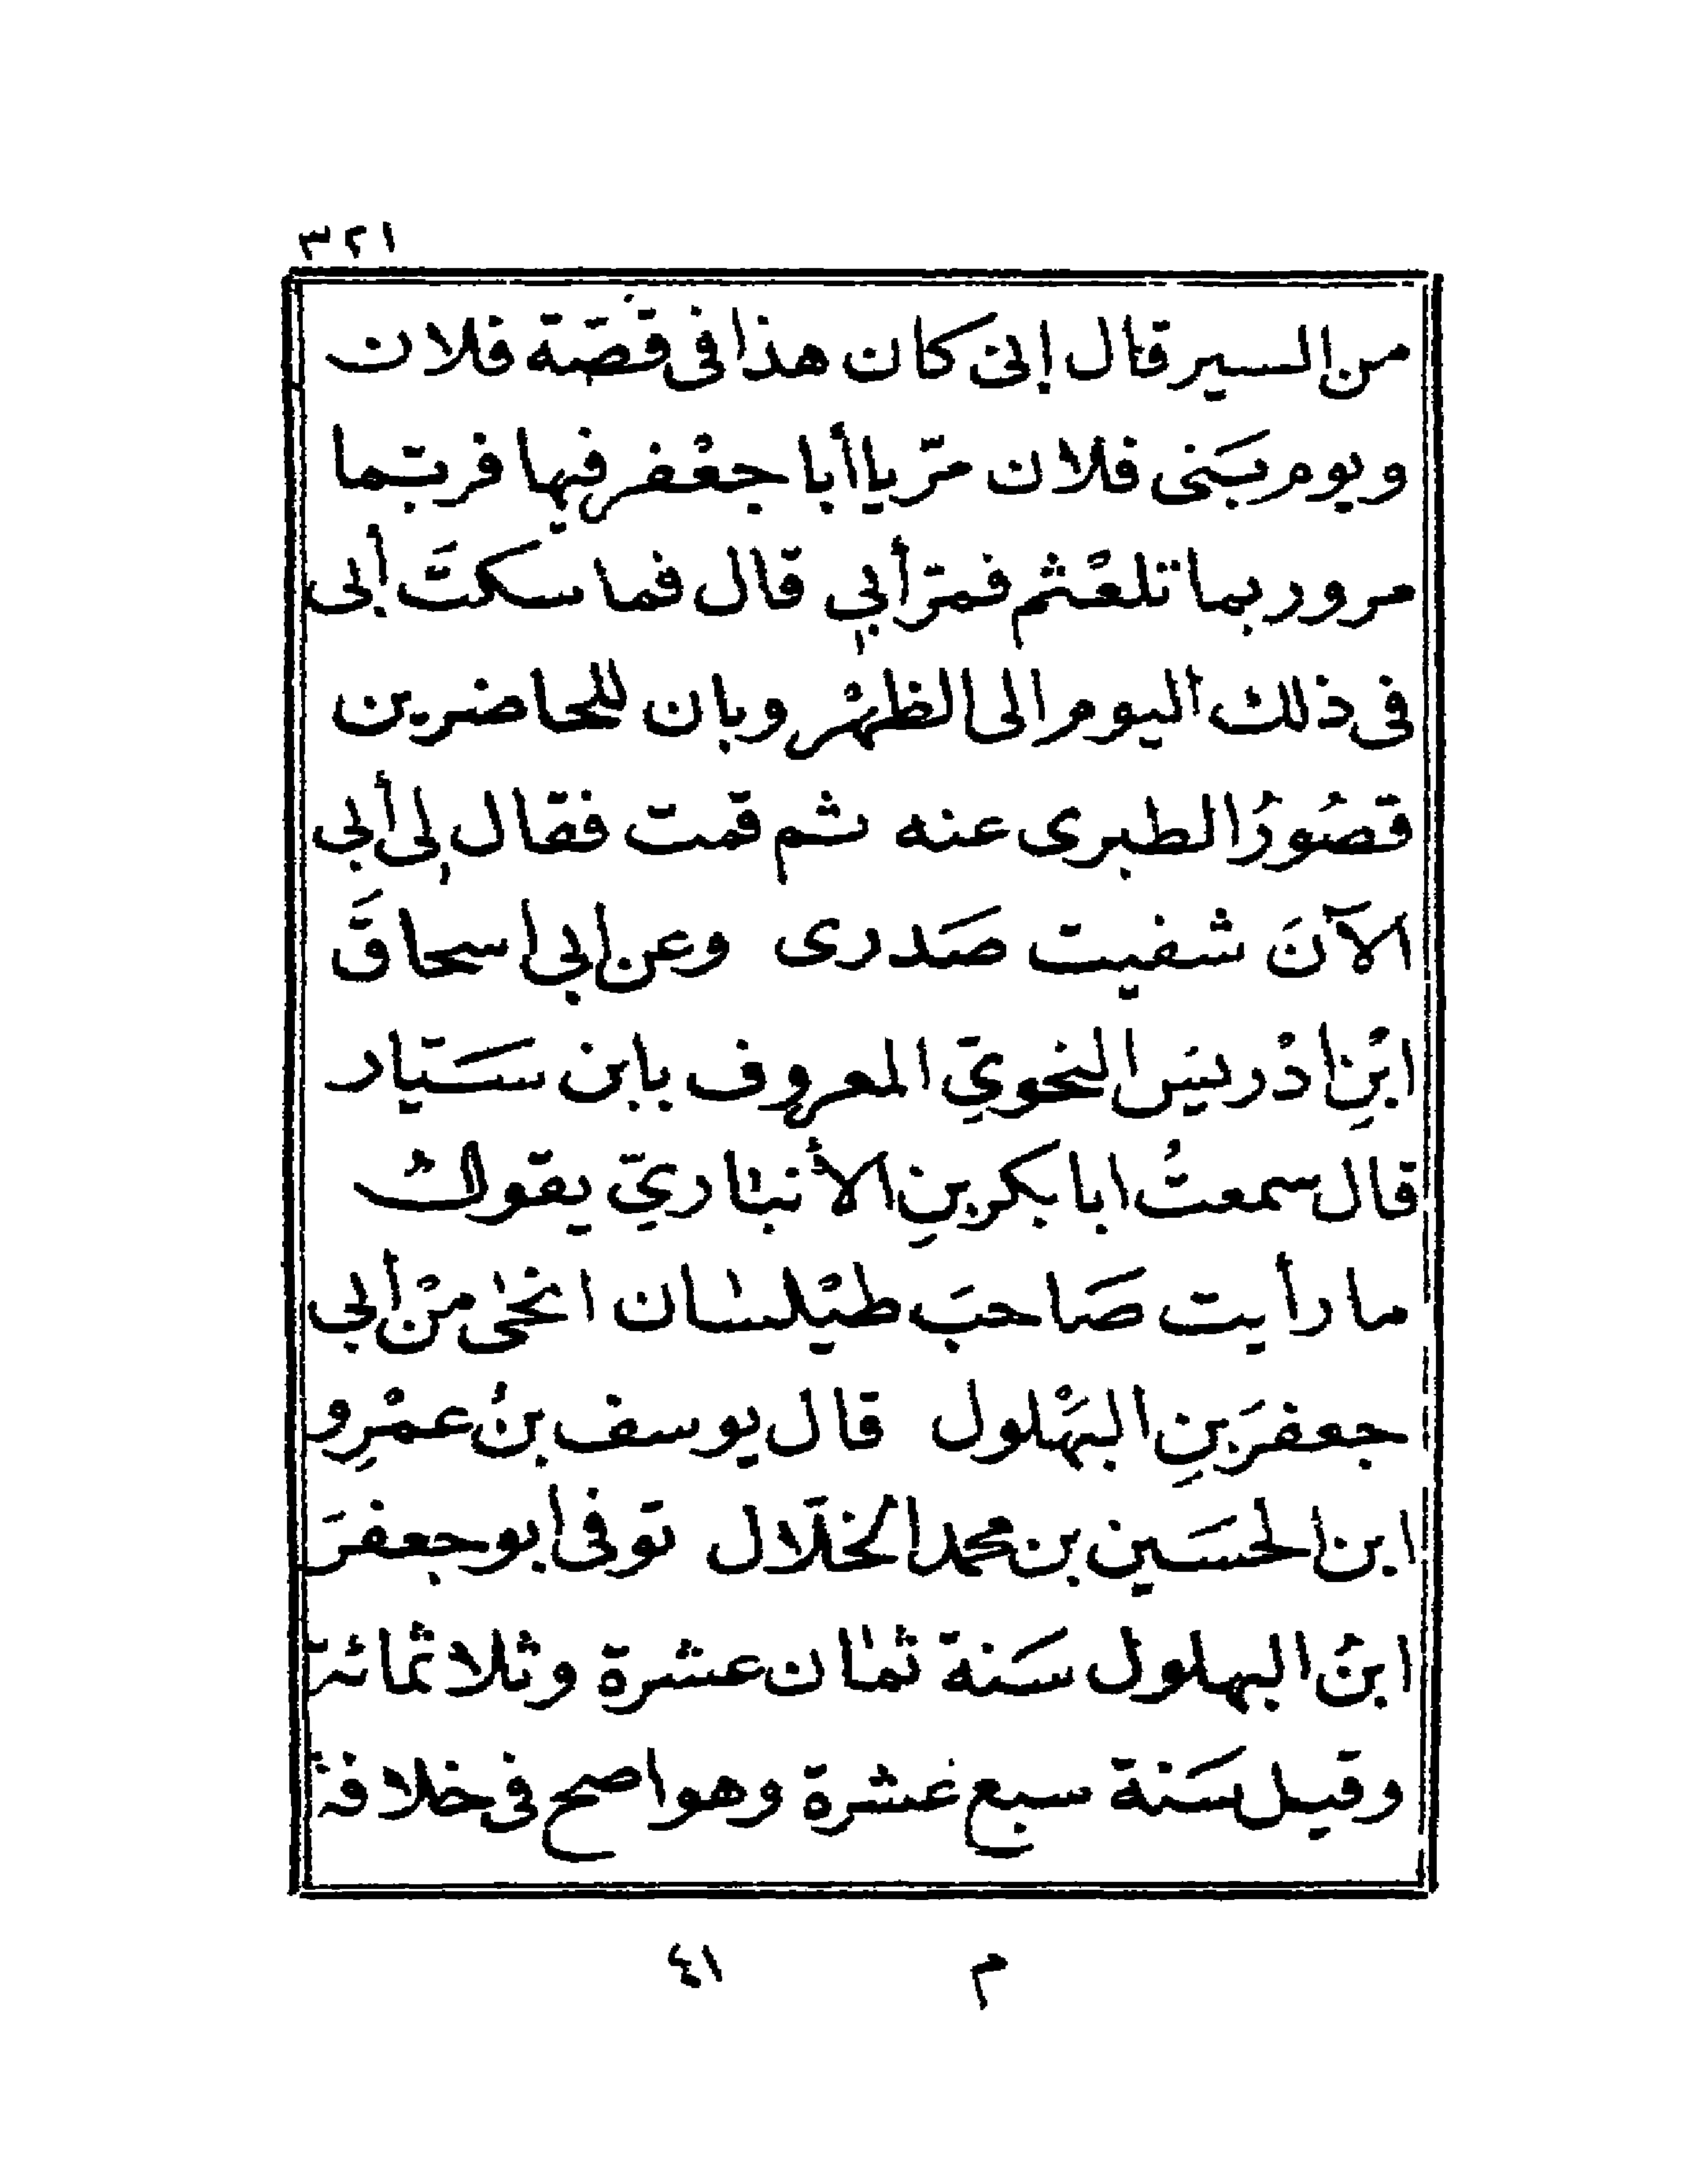 ٣٢١
من السير قال إنى كان هذا فى قصّة فلان
ويوم بَنى فلان مرّ يا أبا جعْفر فيها فربّما
مرور بما تلعْثم فمرّ أبي قال فما سكتَ أبى
فى ذلك اليوم الى الظهْر وبان للحاضرين
قصُورُ الطبرى عنه ثم قمت فقال لِى أبى
الآنَ شفيت صَدرى وعن ابى اسحاقَ
ابْنِ ادْريسَ النحويّ المعروف بابن سَيّار
قال سمعتُ ابا بكر بنِ الأنباريّ يقولُ
ما رأيت صَاحبَ طيْلسان انحىٰ منْ أبى
جعفرَ بنِ البهْلول قال يوسف بنُ عمْرِو
ابن الحسَين بن محمد الخلّال توفى ابو جعفرَ
ابنُ البهلول سَنة ثمان عشرة وثلاثمائة
وقيل سَنة سبع عشرة وهو اصح فى خلافة
م ٤١